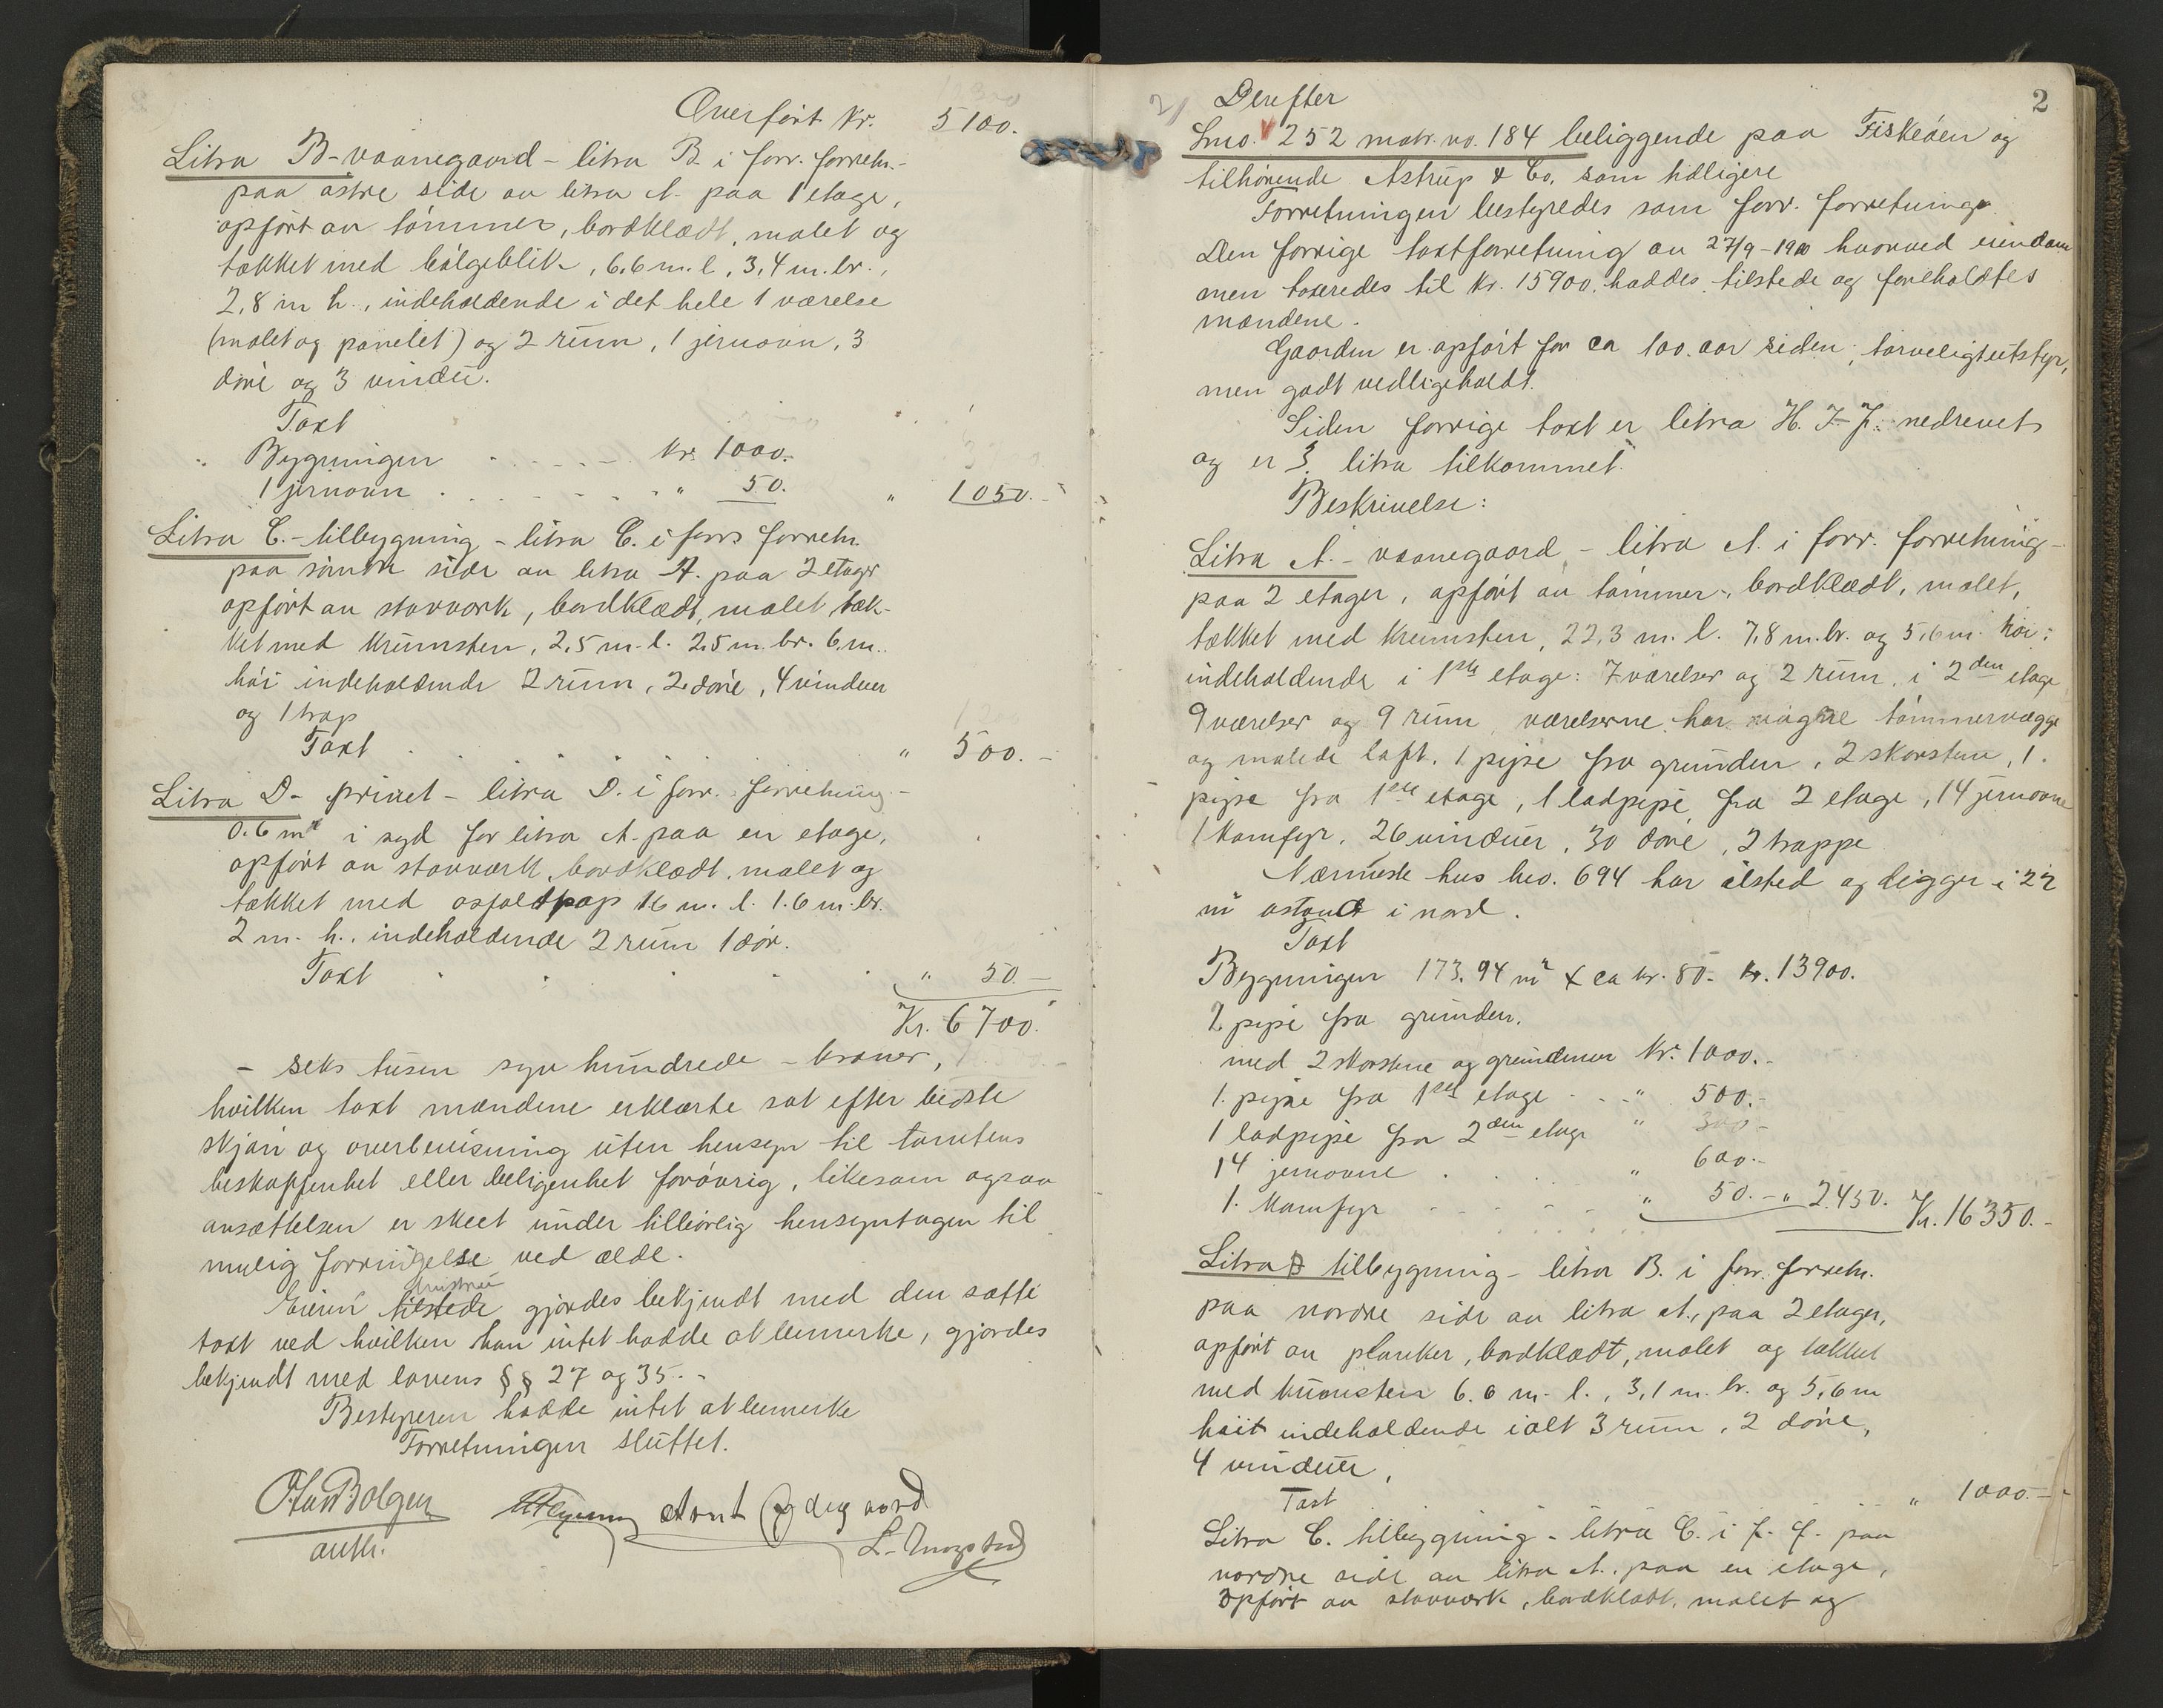 Overført Kr. 5100.
Litra B - vaanegaard - litra B. i forr. forretn.-
paa østre side av litra A. paa 1 etage,
opført av tømmer, bordklædt, malet og
tækket med bølgeblik, 6,6 m. l., 3,4 m. br.,
2,8 m h., indeholdende i det hele 1 værelse
(malet og panelet) og 2 rum, 1 jernovn, 3
døre og 3 vinduer.
Taxt
Bygningen . . . . . Kr. 1000.-
1 jernovn . . . . . " 50. " 1050.-
Litra C. - tilbygning - litra C. i forr. forretn.
paa samme side av litra A. paa 2 etager
opført av stavverk, bordklædt, malet tæk-
ket med krumsten, 2,5 m. l. 2,5 m. br. 6. m.
høi indeholdende 2 rum, 2 døre, 4 vinduer
og 1 trap
Taxt . . . . . " 500.-
Litra D - privet - litra D. i forr. forretning -
0.6 m i syd for litra A. paa en etage,
opført av stavværk, bordklædt, malet og
tækket med asfaltpap 1.6 m. l. 1.6 m. br.
2 m. h., indeholdende 2 rum 1 dør.
Taxt . . . . . " 50.-
Kr. 6700.-
- seks tusen syv hundrede - kroner,
hvilken taxt mændene erklærte sat efter bedste
skjøn og overbevisning uten hensyn til tomtens
beskaffenhet eller beligenhet forøvrig, likesom ogsaa
ansættelsen er skeet under tilbørlig hensyntagen til
mulig forringelse ved ælde.
hustru
Eieren tilstede gjordes bekjendt med den satte
taxt ved hvilken han intet hadde at bemerke, gjordes
bekjendt med lovens §§ 27 og 35.-
Bestyreren hadde intet at bemerke
Forretningen sluttet.
Arnt Ødegaard
auth.
2
2/ Derefter
Lno. 252 matr. no. 184 beliggende paa Fiskeøen og
tilhørende Astrup & Co. som tidligere
Forretningen bestyredes som forr. forretning.
Den forrige taxtforretning av 27/9-1910 hvorved eiendom
men taxeredes til Kr. 15900. haddes tilstede og foreholdtes
mændene.
Gaarden er opført for ca 100. aar siden; tarveligt utstyr,
men godt vedligeholdt.
Siden forrige taxt er litra H. I-J. nedrevet
og er 3. litra tilkommet.
Beskrivelse:
Litra A. - vaanegaard - litra A. i forr. forretning -
paa 2 etager, opført av tømmer, bordklædt, malet,
tækket med krumsten, 22,3 m. l. 7,8 m. br. og 5,6 m. høi:
indeholdende i 1ste etage: 7 værelser og 2 rum, i 2den etage
9 værelser og 9 rum, værelserne har tømmervægge
og malede loft, 1 pipe fra grunden, 2 skorstene, 1.
pipe fra 1ste etage, 1 ladpipe fra 2 etage, 14 jernovne
1 komfyr, 26 vinduer, 30 døre, 2 trappe
Nærmeste hus lno. 694 har ilsted og ligger i 22
m avstand i nord.
Taxt
Bygningen 173.94 m² x ca kr. 80.- Kr. 13900.
1 pipe fra grunden,
med 2 skorstene og grundmur Kr. 1000.-
1. pipe fra 1ste etage . . . " 500.-
1 ladpipe fra 2den etage " 300.-
14 jernovne . . . . " 600.-
1. komfyr . . . . . " 50.- " 2450. Kr. 16350.-
Litra B tilbygning - litra B. i forr. forretn.
paa nordre side av litra A., paa 2 etager,
opført av planker, bordklædt, malet og tækket
med krumsten 6.0 m. l., 3,1 m. br. og 5,6 m
høit indeholdende ialt 3 rum, 2 døre,
4 vinduer,
Taxt . . . . . " 1000.-
Litra C. tilbygning - litra C. i f. f. paa
nordre side av litra A., paa en etage,
opført av stavverk, bordklædt, malet og